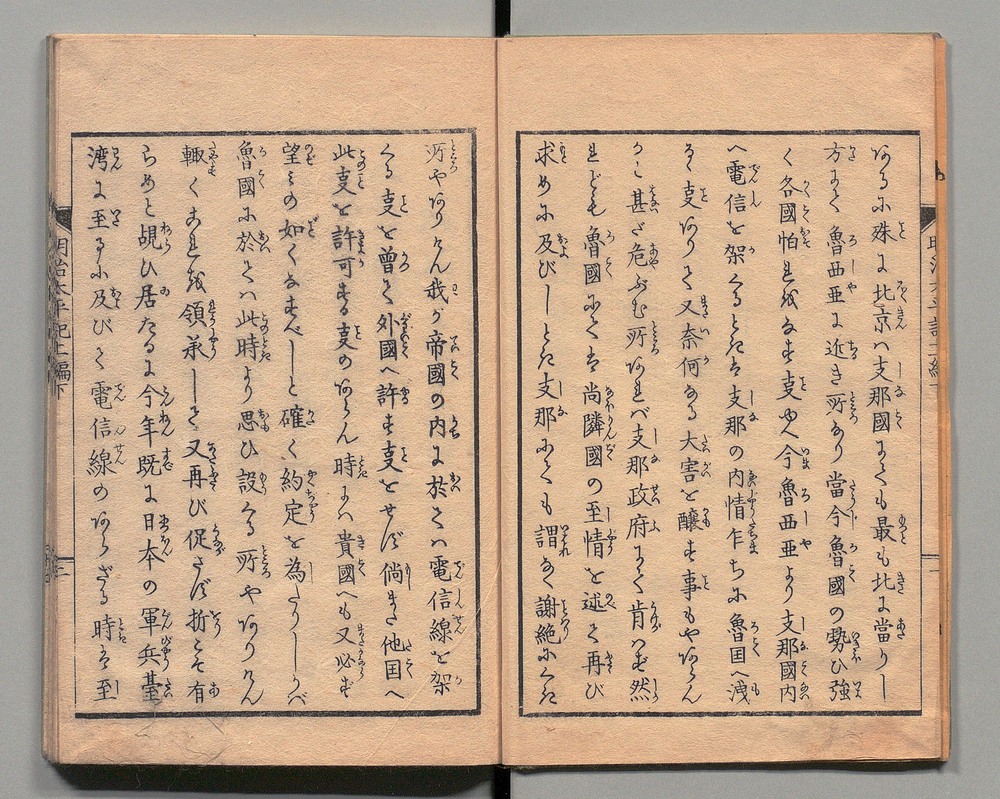 なるに殊に北京ハ支那國にても最も北に當りし
方にて魯西亜に近き所なり當今魯國の勢ひ強
く各國怕れ我なす㕝ゆへ今魯西亜より支那國内
へ電信を架くるときは支那の内情乍ちに魯国へ洩
る㕝ありて又奈何なる大害を醸す事もやあらん
かと甚だ危ぶむ所あれバ支那政府にて肯ハず然
れども魯國にては尚隣國の至情を述て再び
求めに及びしとき支那にても謂なく謝絶にくき
所やありけん我が帝國の内に於てハ電信線を架
くる㕝を曽て外國へ許す㕝をせず倘また他国へ
此㕝を許可する㕝のあらん時にハ貴國へも又必ず
望みの如くなすべしと確く約定を為たりしかバ
魯國に於てハ此時より思ひ設くる所やありけん
輙くこれを領承して又再び促さず折こそ有
らめと覘ひ居たるに今年既に日本の軍兵臺
湾に至るに及びて電信線のあらざる時は至
明治太平記十編下